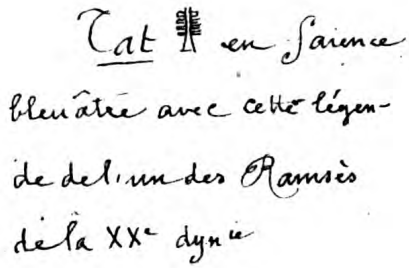 Tat 𓊽 en faience
bleuâtre avec cette légen-
de de l'un des Ramsès
de la XXe dynie